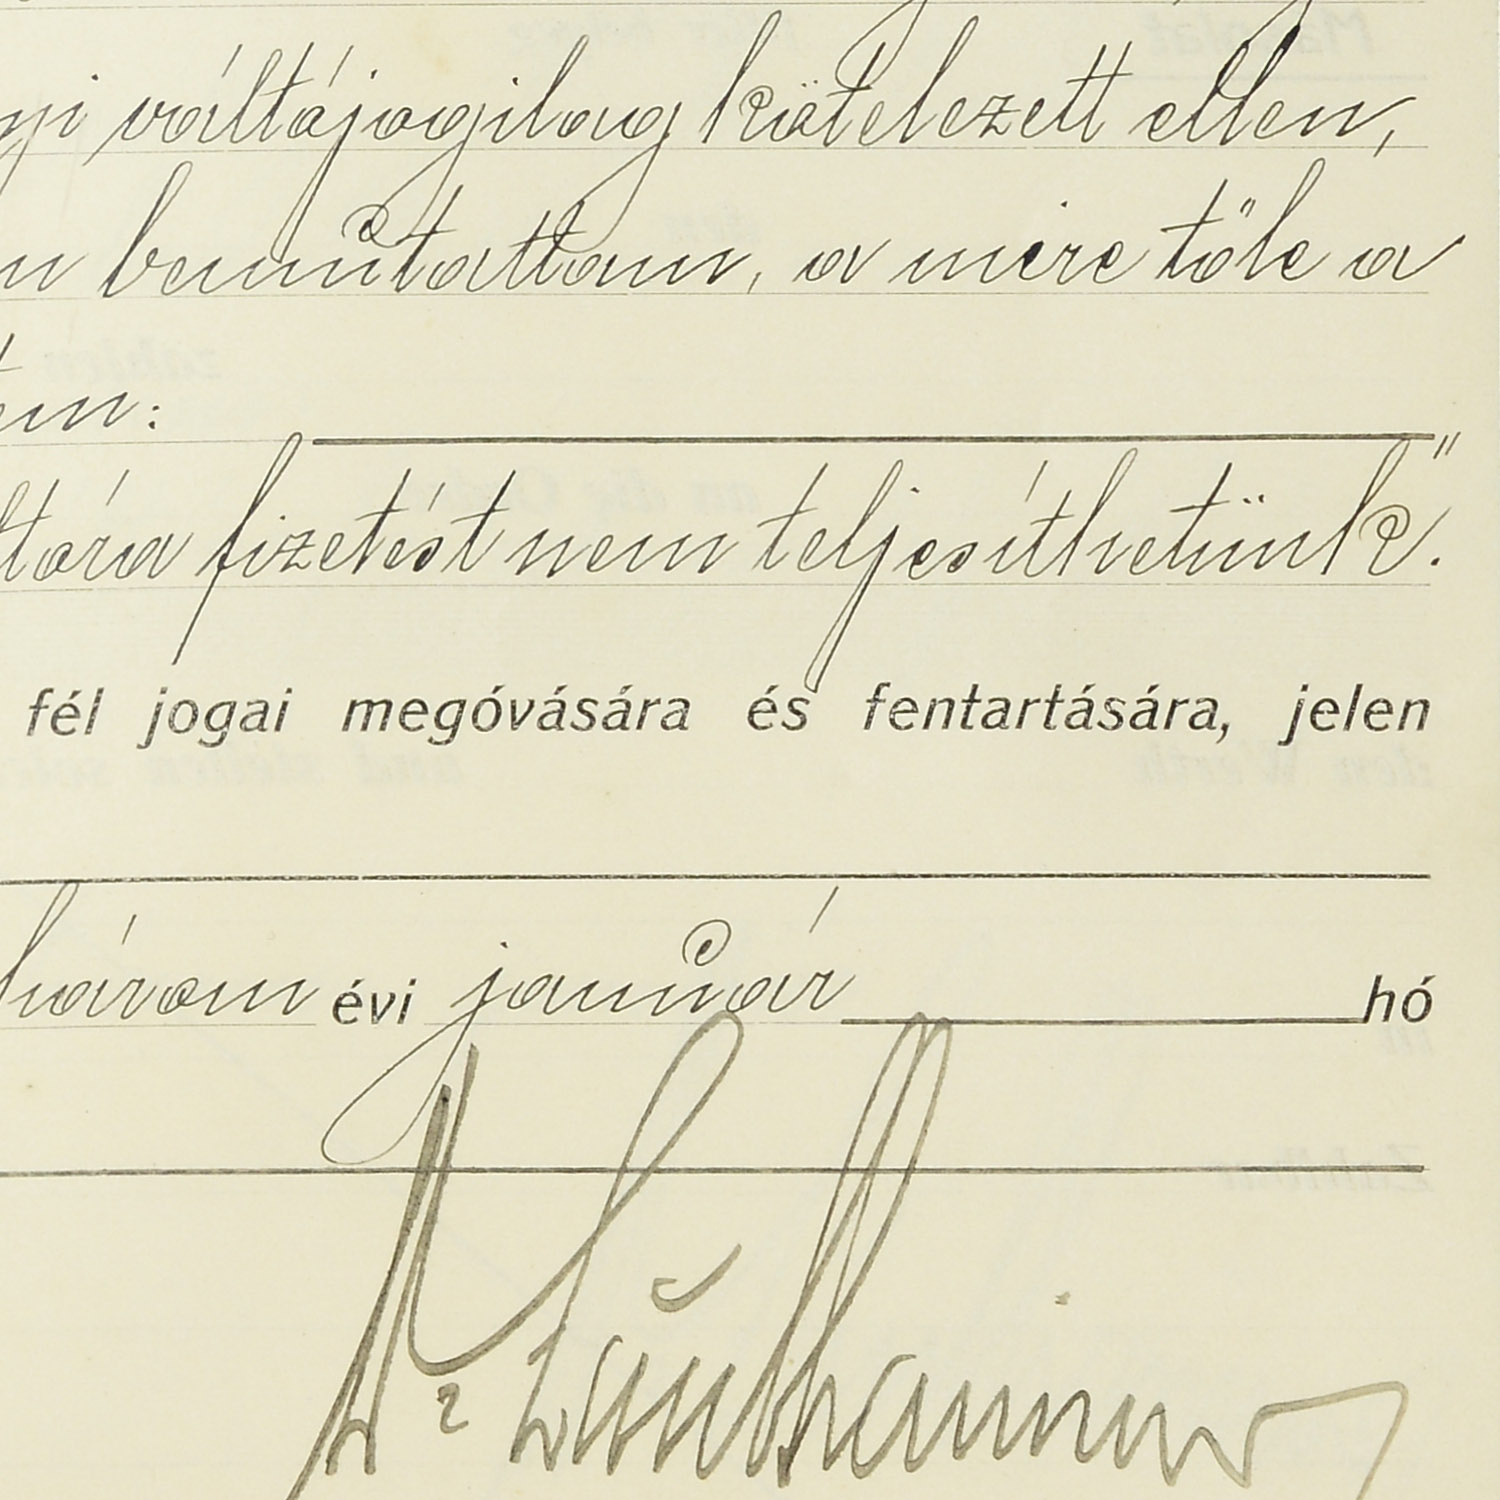 váltójogilag kötelezett ellen,
n bemutattam, a mire tőle a
em:
"
ltóra fizetést nem teljesíthetünk.
fél jogai megóvására és fentartására, jelen
három évi január hó
Dr